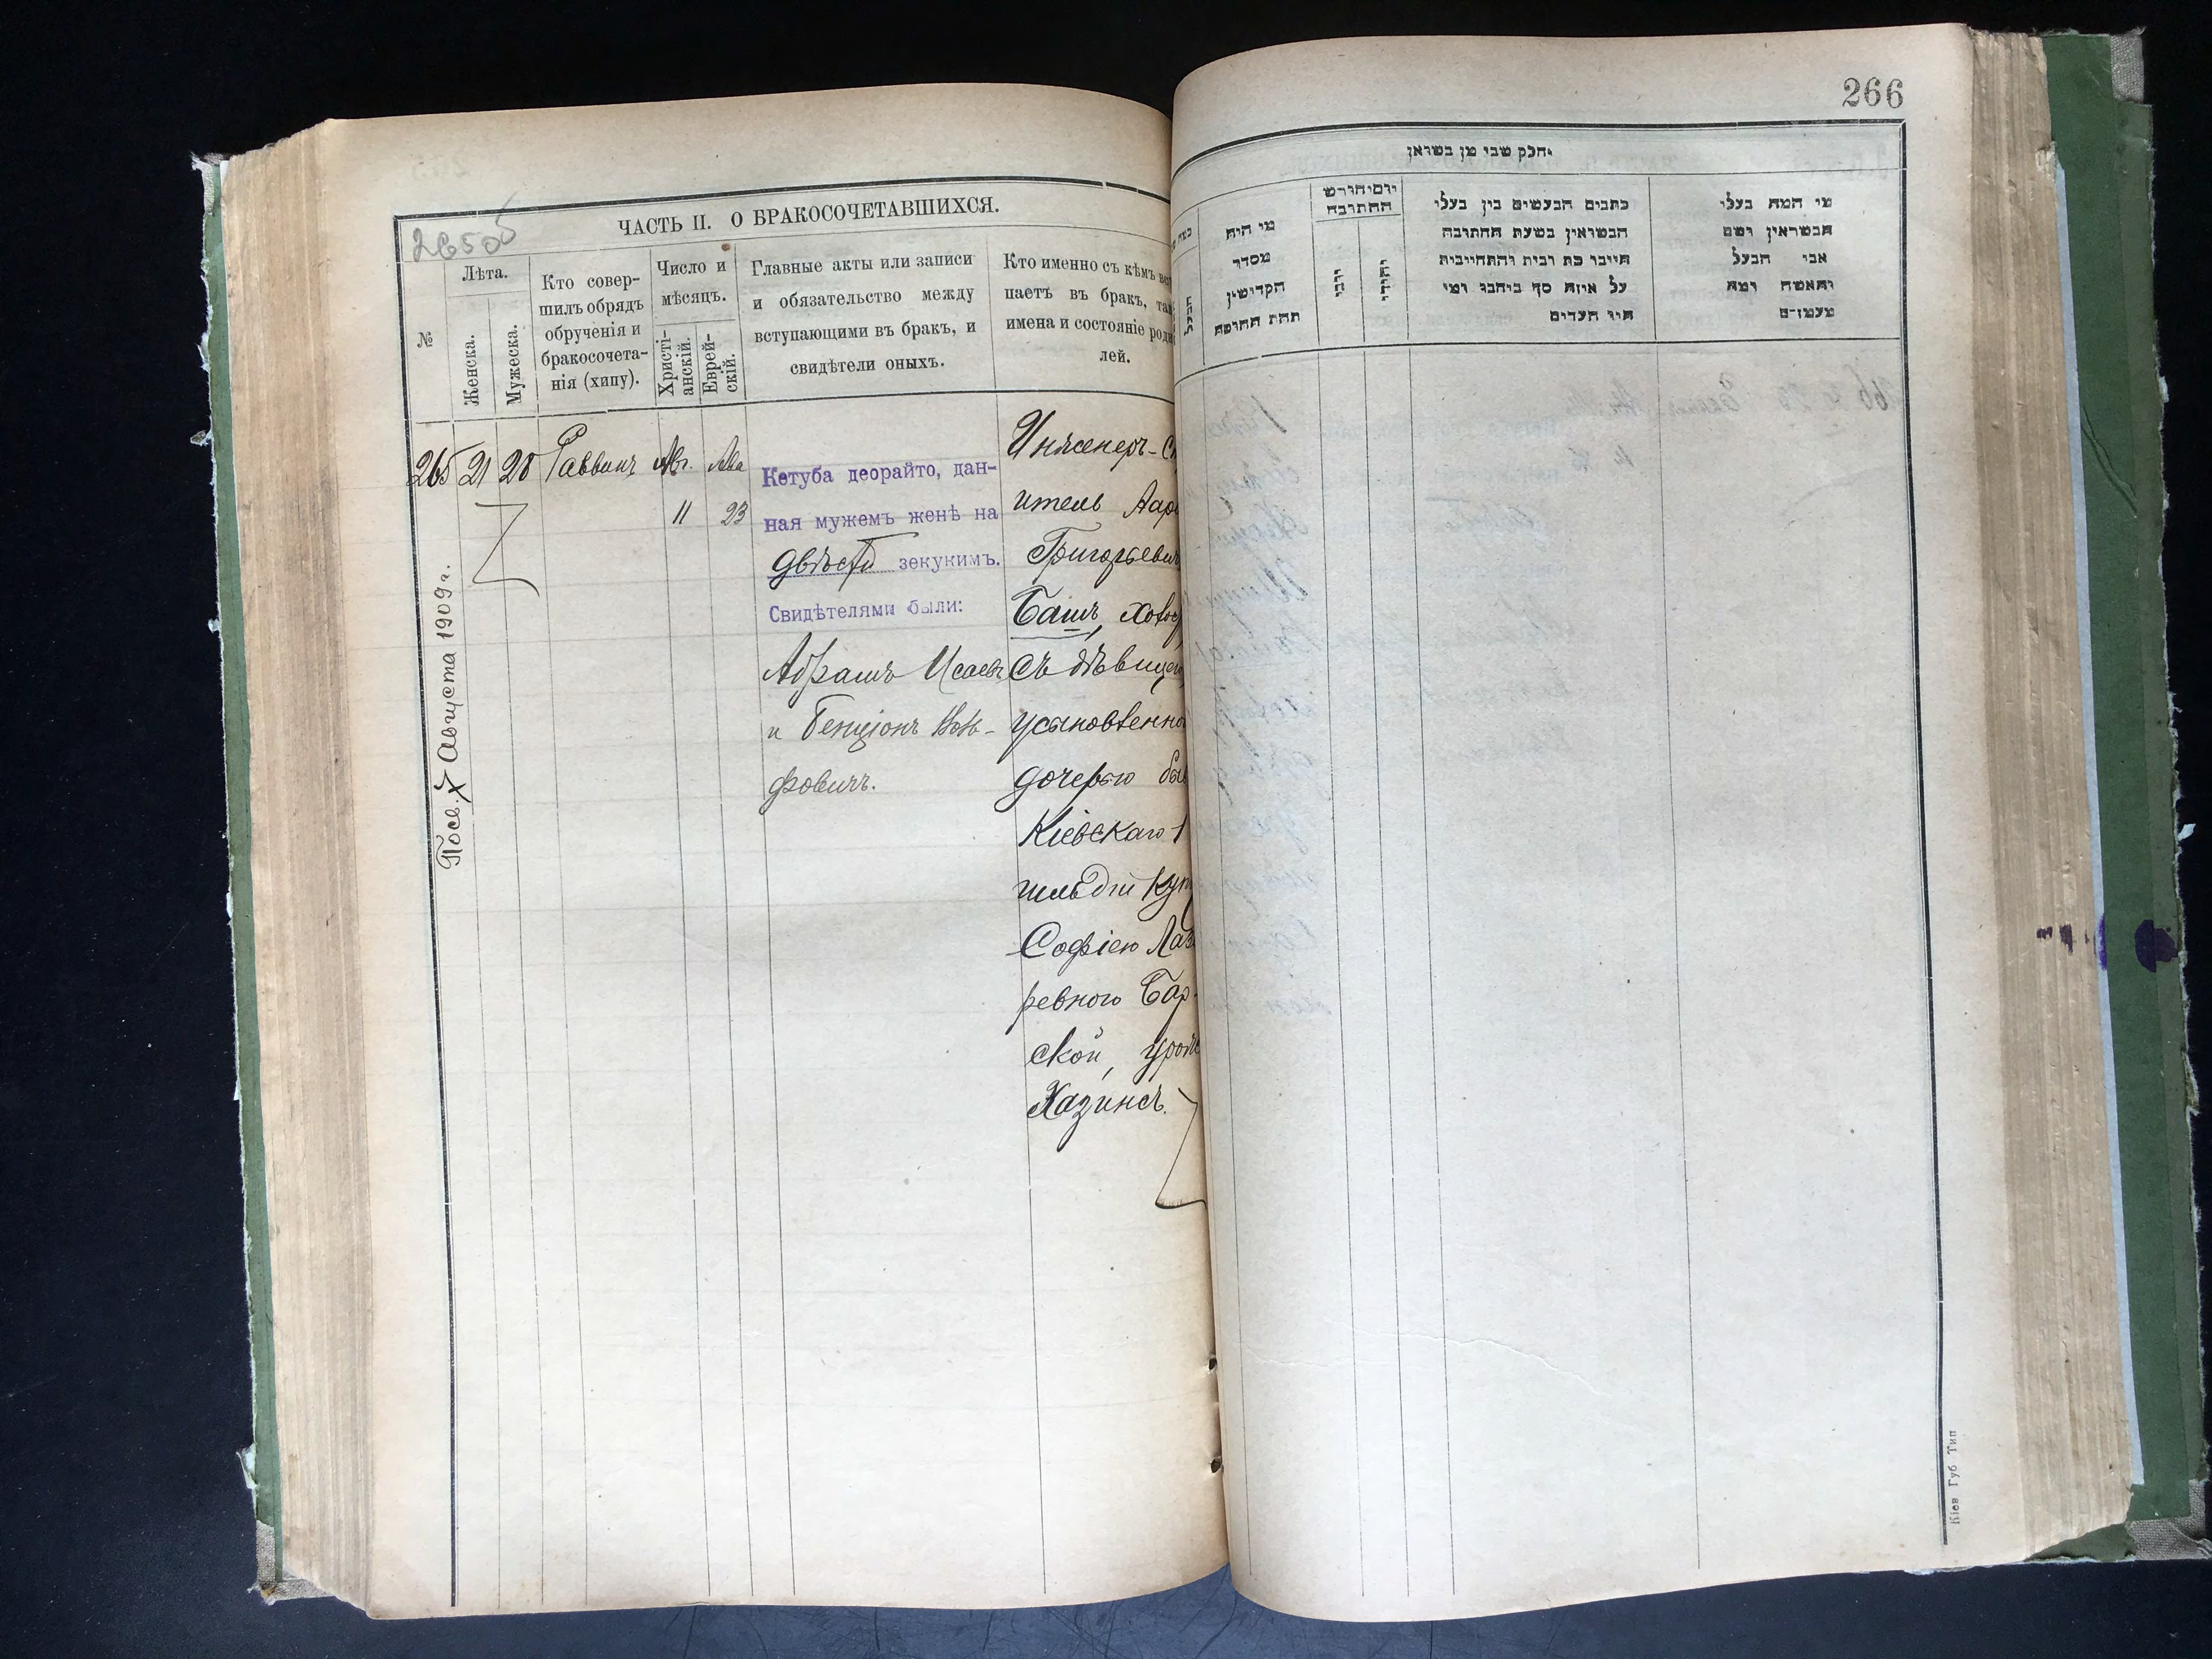 266
265 об
ЧАСТЬ II. О БРАКОСОЧЕТАВШИХСЯ.
№
Лѣта.
Женска.
Мужеска.
Кто совер-
шилъ обрядъ
обрученія и
бракосочета-
нія (хипу).
Число и
мѣсяцъ.
Христі-
анскій.
Еврей-
скій.
Главные акты или записи
и обязательство между
вступающими въ бракъ, и
свидѣтели оныхъ.
Кто именно съ кѣмъ вст
паетъ въ бракъ, так
имена и состояніе роди
лей.
265 21 28 Раввинъ Авг. Ава
11 23
Кетуба деорайто, дан-
ная мужемъ женѣ на
двѣсти зекукимъ.
Свидѣтелями были:
Абрамъ Исаевъ
и Бенціонъ
фовичъ.
Инженеръ-Ст
итель Аар
Григорьевич
Башъ, холос
съ дѣвицею,
усыновленно
дочерью быв
Кіевскаго 1
гильдіи куп
Софіею Лаза
ревною Бар-
ской, урожд
Хазинсъ.
Посв. 7 Августа 1909 г.
חלק שני מן נשואן
מי היה
מסדר
הקדושין
תחת החופה
יום וחודש
החתונה
יוני
יהודי
כתבים הנעשים בין בעלי
הנשואין בשעת החתונה
חייבו כת ובית והתחייבות
על איזה סך ביחבו ומי
היו העדים
מי המה בעלי
הנשואין ושם
אבי הבעל
והאשה ומה
מעמדם
הבעל
Кіев Губ Тип